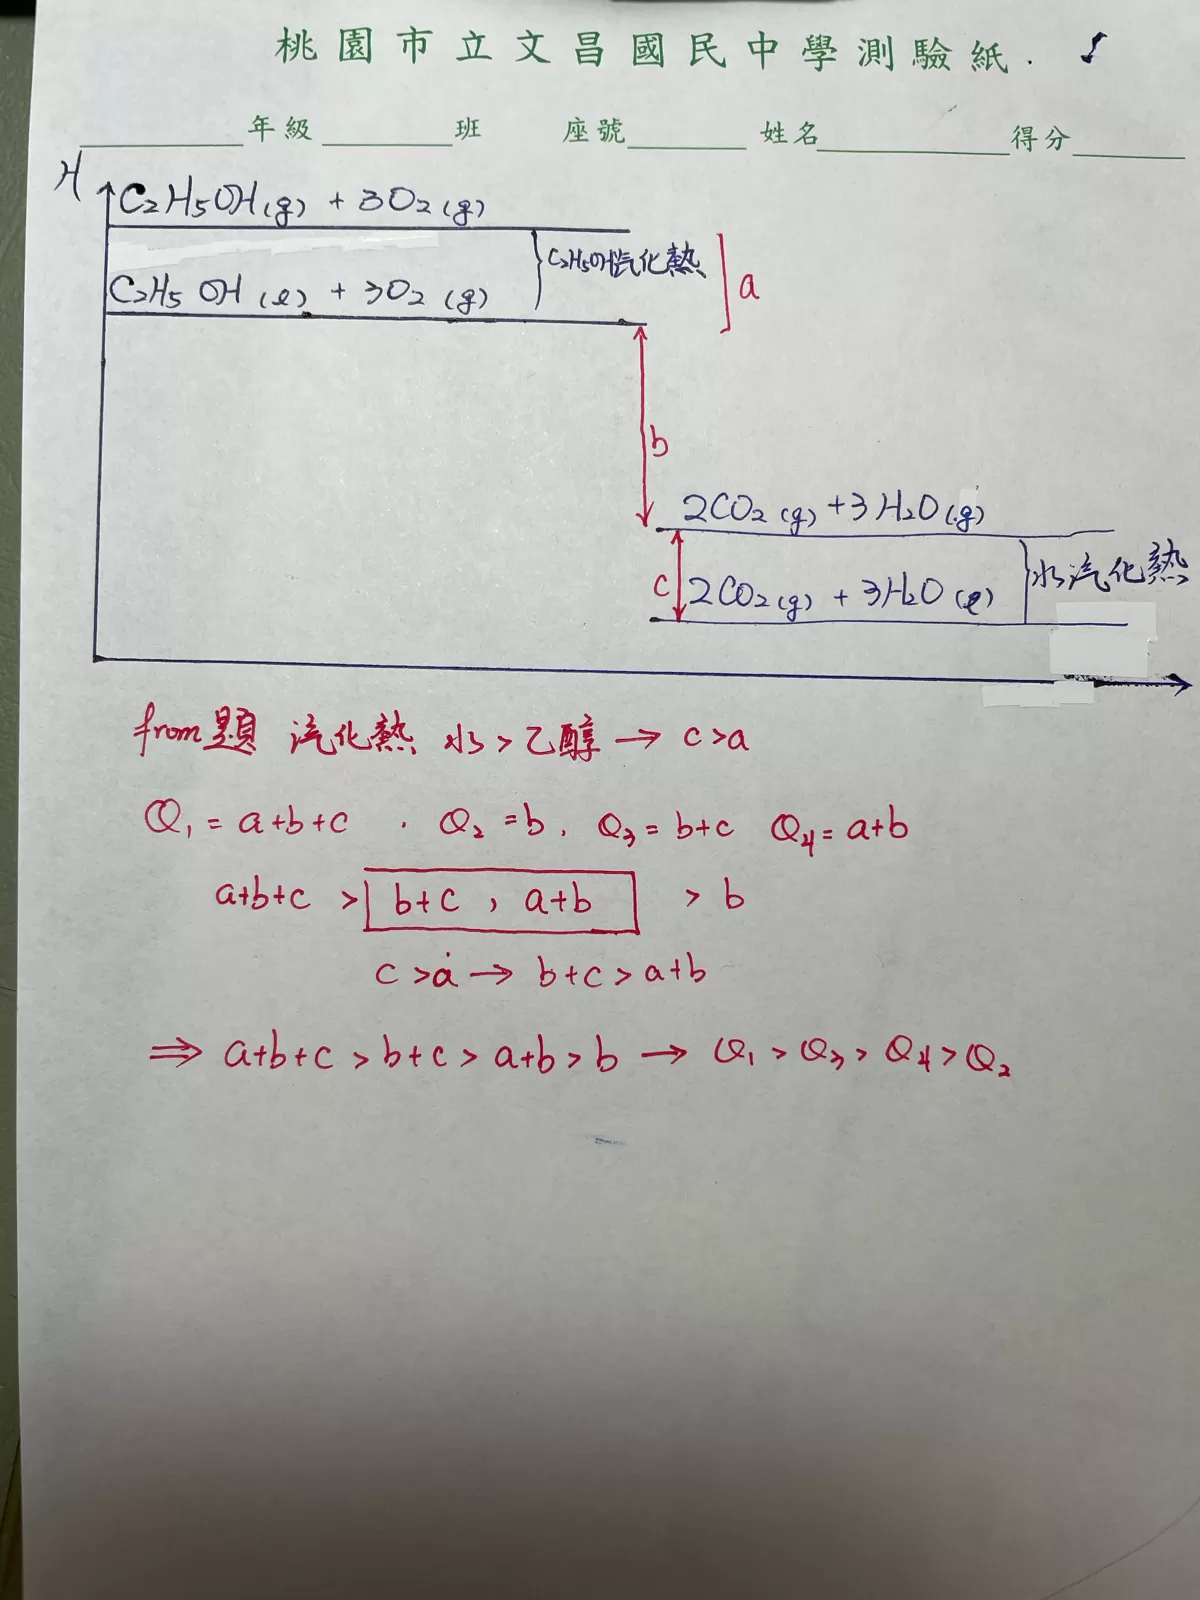 桃園市立文昌國民中學測驗紙.
年級 班 座號 姓名 得分
H
C₂H₅OH(g) + 3O₂(g)
C₂H₅OH汽化熱
a
C₂H₅OH(ℓ) + 3O₂(g)
b
2CO₂(g) + 3H₂O(g)
c
2CO₂(g) + 3H₂O(ℓ)
水汽化熱
from題 汽化熱 水 > 乙醇 → c>a
Q₁ = a+b+c . Q₂ = b . Q₃ = b+c Q₄ = a+b
a+b+c > b+c , a+b > b
c>a → b+c > a+b
⇒ a+b+c > b+c > a+b > b → Q₁ > Q₃ > Q₄ > Q₂